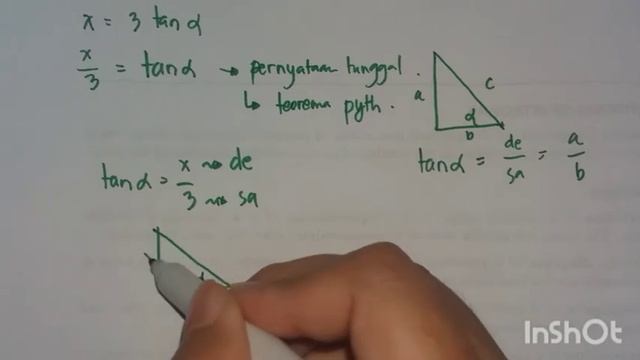 x = 3 tan α
x/3 = tan α → pernyataan tunggal.
↳ teorema pyth.
a
c
α
b
tan α = de/sa = a/b
tan α = x/3
x ⇝ de
3 ⇝ sa
InShOt